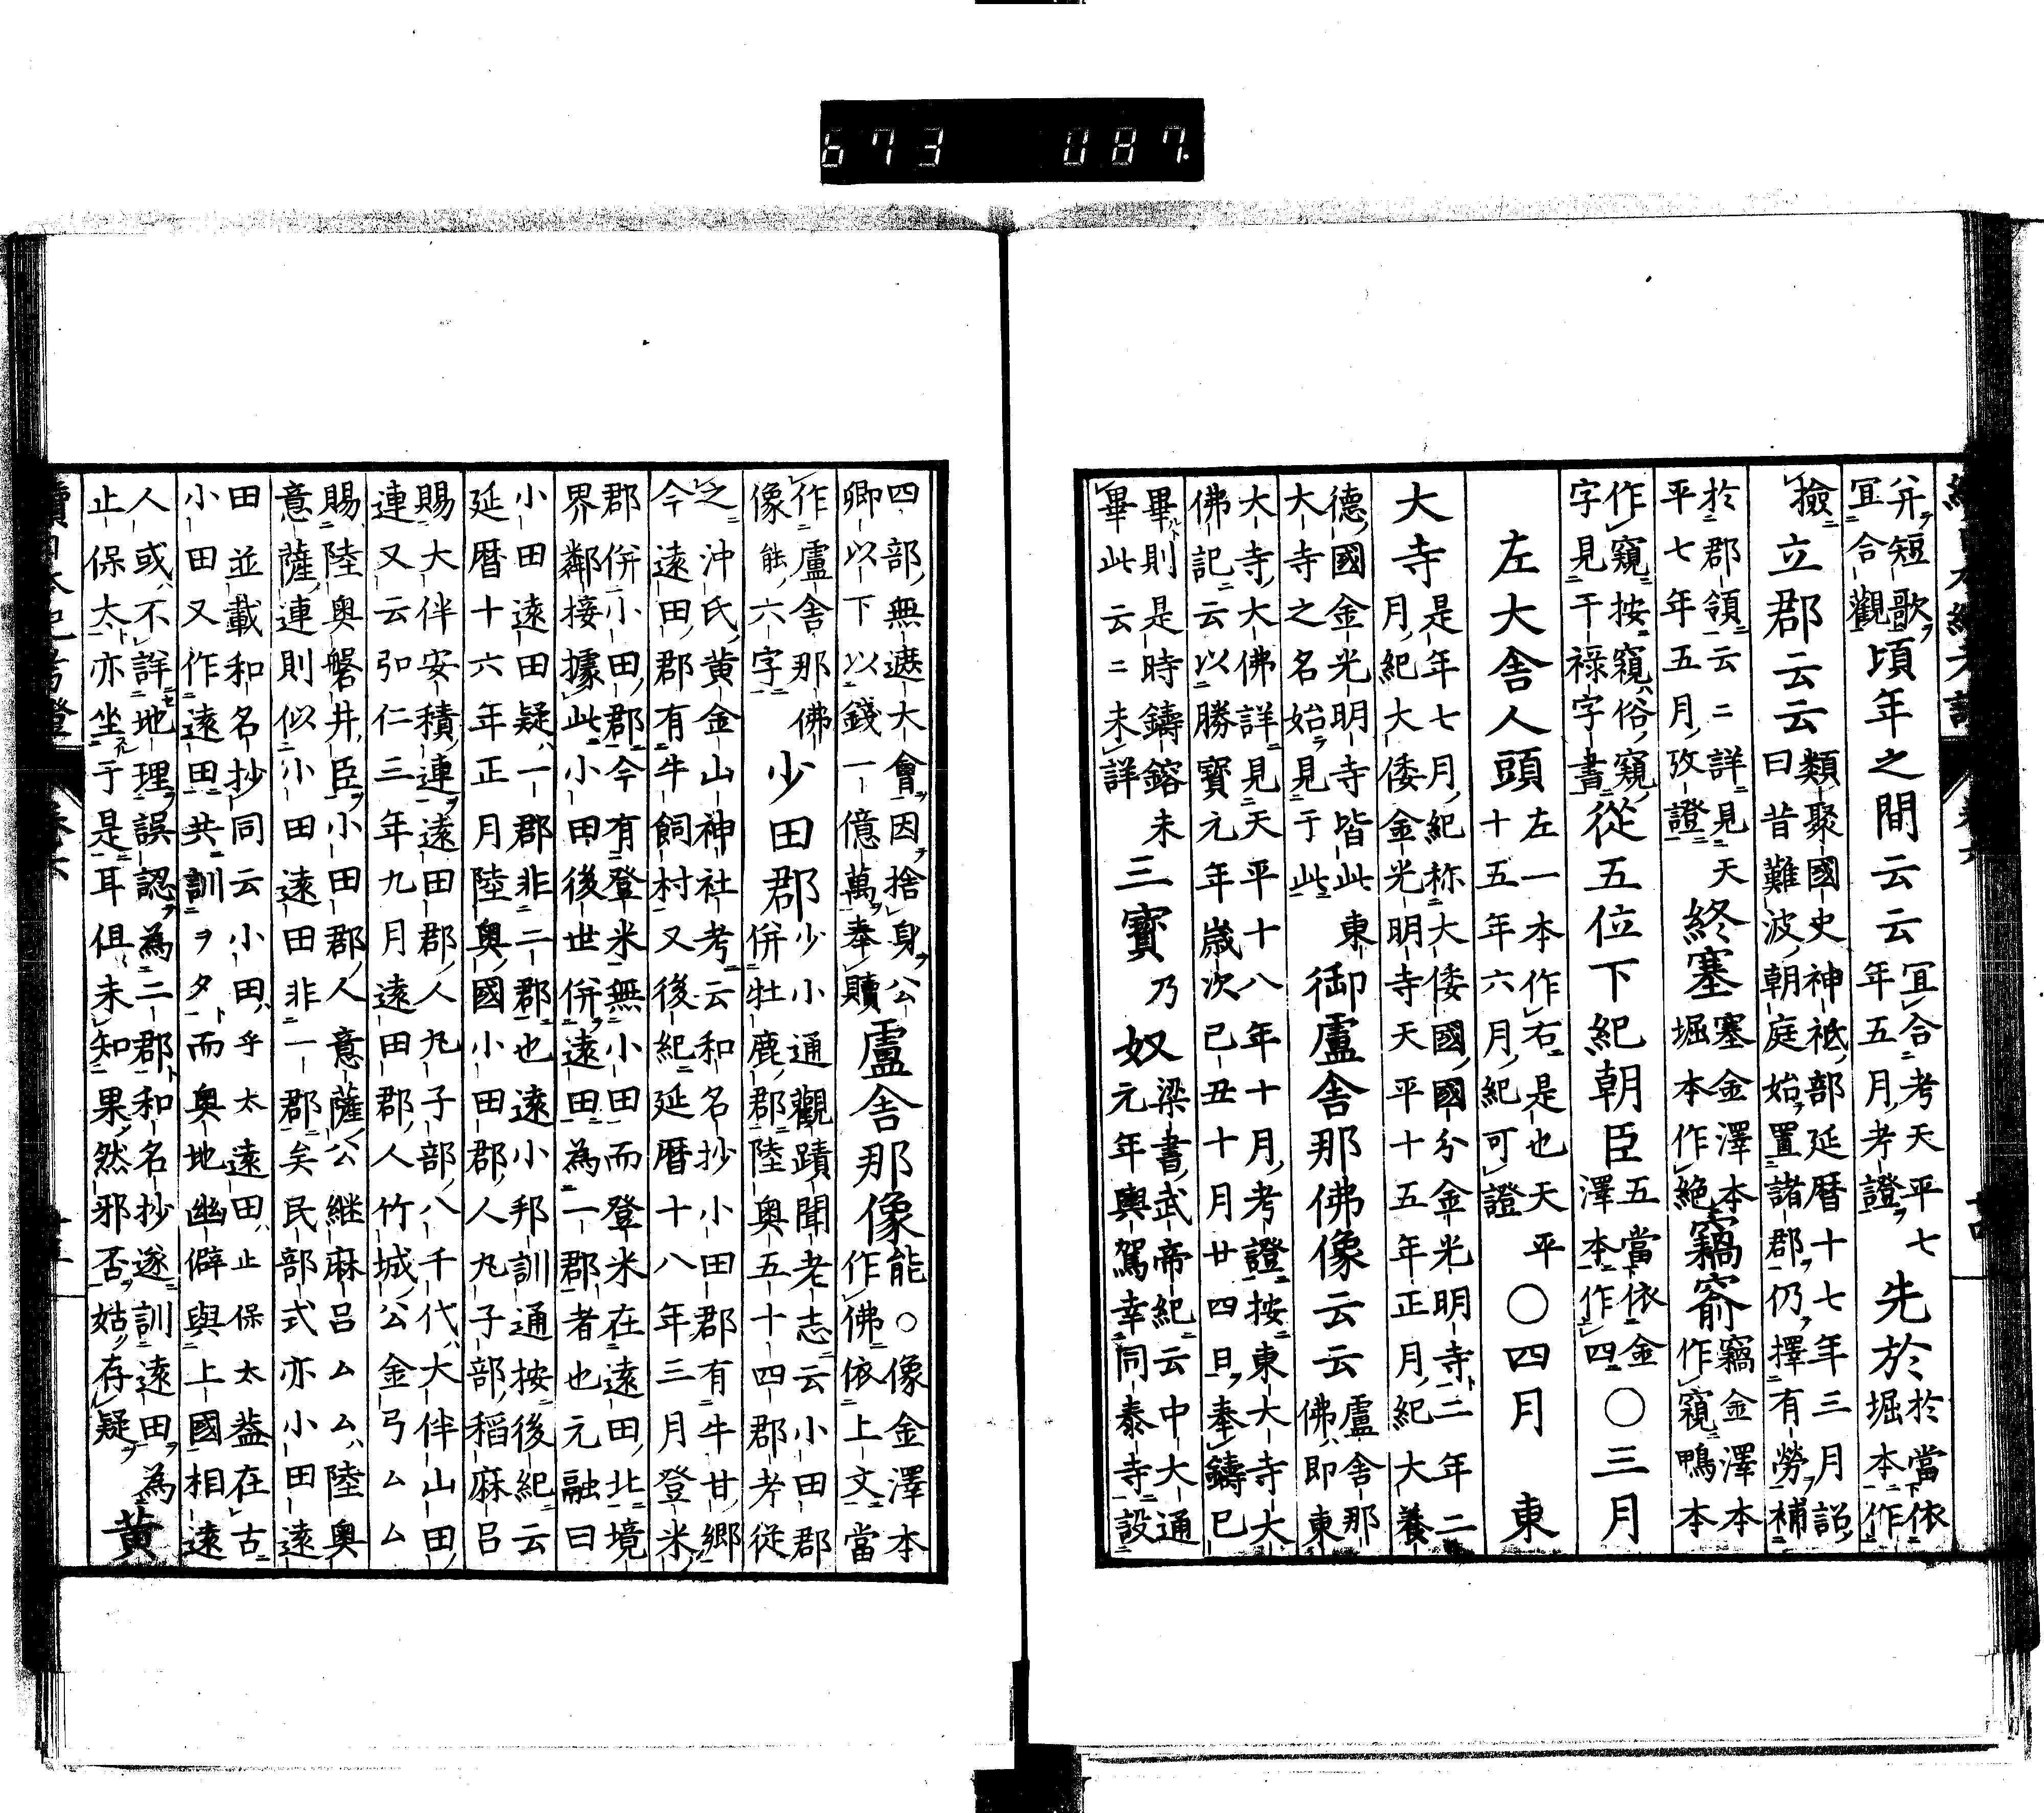 673 087.
幷短歌
宜合觀 頃年之間云云 宜合考天平七
年五月考證 先於 於當依
堀本作
撿 立郡云云 類聚國史神祇部延暦十七年三月詔
曰昔難波朝庭始置諸郡仍擇有勞補
於郡領云二詳見天
平七年五月攷證 終塞 塞金澤本
堀本作絶 窺窬 竊金澤本
作窺鴨本
作窺按窺俗窺
字見干祿字書 從五位下紀朝臣 五當依金
澤本作四 〇三月
左大舍人頭 左一本作右是也天平
十五年六月紀可證 〇四月 東
大寺 是年七月紀称大倭國國分金光明寺二年二
月紀大倭金光明寺天平十五年正月紀大養
德國金光明寺皆此東
大寺之名始見于此 御盧舍那佛像云云 盧舍那
佛即東
大寺大佛詳見天平十八年十月考證按東大寺大
佛記云以勝寶元年歲次己丑十月廿四日奉鑄已
畢則是時鑄鎔未
畢此云二未詳 三寶 乃 奴 梁書武帝紀云中大通
元年輿駕幸同泰寺設
四部無遮大會因捨身公
卿以下以錢一億萬奉贖 盧舍那像 能〇像金澤本
作佛依上文當
作盧舍那佛
像能六字 少田郡 少小通觀蹟聞老志云小田郡
併牡鹿郡陸奥五十四郡考從
之沖氏黄金山神社考云和名抄小田郡有牛甘郷
今遠田郡有牛飼村又後紀延暦十八年三月登米
郡併小田郡今有登米無小田而登米在遠田北境
界鄰接據此小田後世併遠田為一郡者也元融曰
小田遠田疑一郡非二郡也遠小邦訓通按後紀云
延暦十六年正月陸奥國小田郡人丸子部稻麻呂
賜大伴安積連遠田郡人丸子部八千代大伴山田
連又云弘仁三年九月遠田郡人竹城公金弓ムム
賜陸奥磐井臣小田郡人意薩公継麻呂ムム陸奥
意薩連則似小田遠田非一郡矣民部式亦小田遠
田並載和名抄同云小田乎太遠田止保太葢在古
小田又作遠田共訓ヲタ而奥地幽僻與上國相遠
人或不詳地理誤認為二郡和名抄遂訓遠田為
止保太亦坐于是耳但未知果然邪否姑存疑 黄